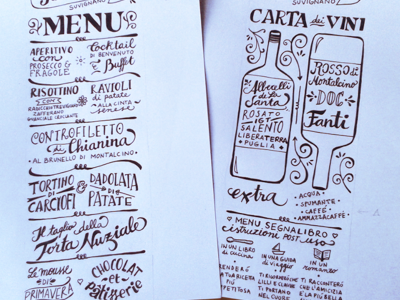 SUVIGNANO
MENU
APERITIVO
CON
PROSECCO &
FRAGOLE
Cocktail
DI BENVENUTO
Buffet
RISOTTINO
CON
RADICCHIO TREVIGIANO
ZAFFERANO
RAVIOLI
di patate
ALLA CINTA
senese
CONTROFILETTO
di Chianina
AL BRUNELLO DI MONTALCINO
TORTINO
di
CARCIOFI
&
DADOLATA
DI
PATATE
Il taglio della
Torta Nuziale
Le mouse
DI
PRIMAVERA
CHOCOLAT
et
Pâtisserie
SUVIGNANO
CARTA dei VINI
Albarelli
di
Santa
ROSATO
IGT
SALENTO
LIBERA TERRA
PUGLIA
ROSSO di
Montalcino
DOC
Fanti
extra
ACQUA
SPUMANTE
CAFFÈ
AMMAZZACAFFÈ
MENU SEGNALIBRO
istruzioni POST uso
IN UN LIBRO
di cucina
IN UNA GUIDA
di viaggio
IN UN
romanzo
RENDERÀ
TI RACCONTERÀ
CHE L'AMICIZIA
TI PORTANO
NEL CUORE